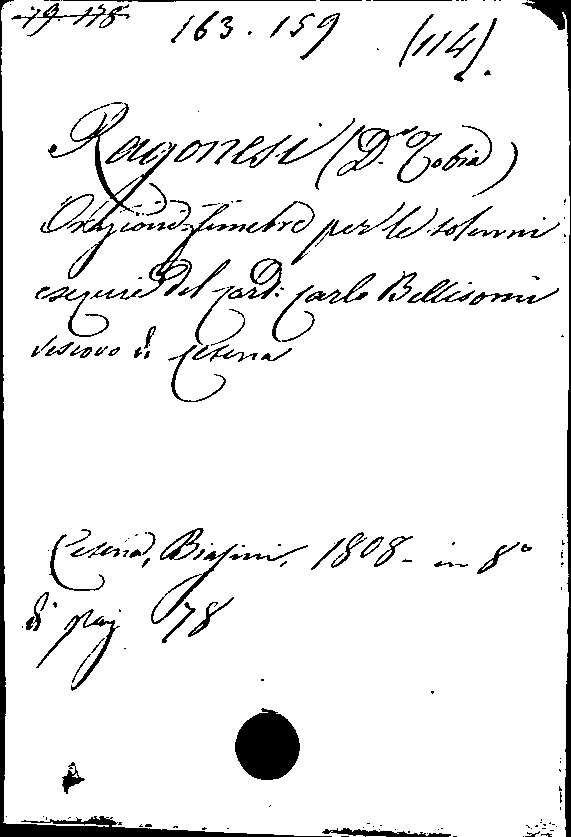 79-178
163. 159 (114).
Ragonesi (D.n Tobia)
Orazione funebre per le solenni
esequie del card: Carlo Bellisomi
vescovo di Cesena
Cesena, Biasini, 1808- in 8°
di pag 78